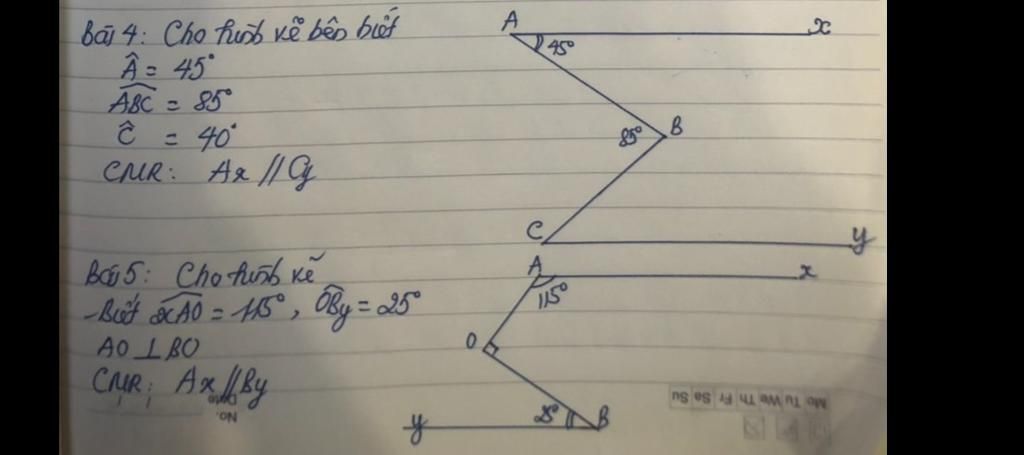 Bài 4: Cho hình vẽ bên biết
Â = 45°
ABC = 85°
Ĉ = 40°
CMR: Ax // Cy
A
x
45°
85°
B
C
y
Bài 5: Cho hình vẽ
- Biết xAO = 115°, OBy = 25°
AO ⊥ BO
CMR: Ax // By
A
x
115°
O
25°
B
y
Mo Tu We Th Fr Sa Su
No.
Date